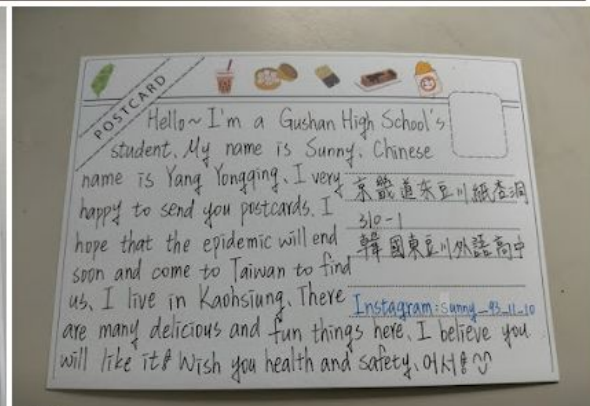 POSTCARD
Hello~ I'm a Gushan High School's
student. My name is Sunny. Chinese
name is Yang Yongqing. I very
happy to send you postcards. I
hope that the epidemic will end
soon and come to Taiwan to find
us. I live in Kaohsiung. There
are many delicious and fun things here. I believe you
will like it! Wish you health and safety. 어서
京畿道东豆川紙杏洞
310-1
韓國東豆川外語高中
Instagram: Sunny_93_11_10